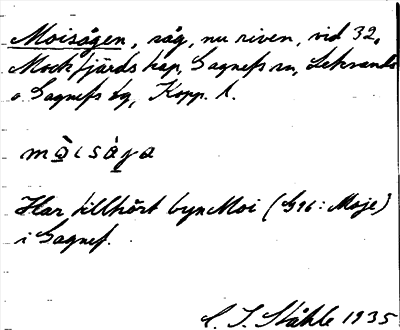 Moisågen, såg, nu riven, vid 32,
Mockfjärds kap, Gagnefs sn, Leksands
o Gagnefs tg, Kopp. l.
mɔ̀ısàga
Har tillhört byn Moi (G96: Moje)
i Gagnef.
C. I. Ståhle 1935